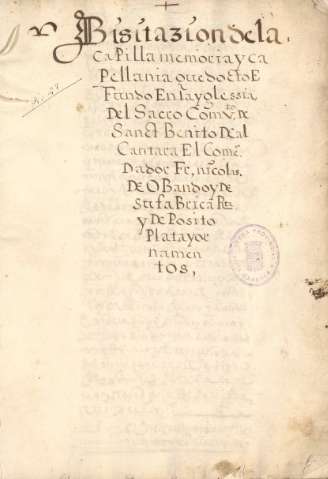 Bisitazion dela
Capilla memoria y ca
Pellania que doto E
Fundo En la yglessia
Del Sacro Comv.to de
Sanct Benito De al
Cantara El Come
Dador Fr, nicolas
De Obando y de
Su fabrica
y De Posito
Plata y or
namen
tos,